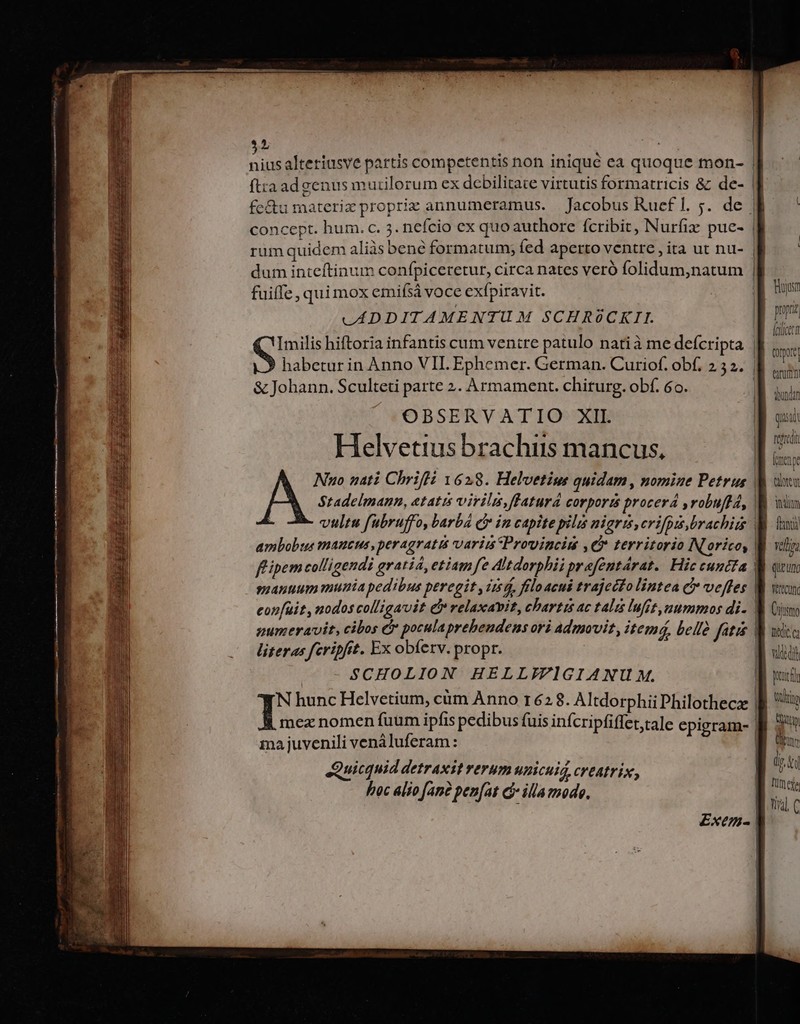 32
nius alteriusve partis competentis non iniquè ea quoque mon-
ſtra ad genus mutilorum ex debilitate virtutis formatricis & de-
fectu materiæ propriæ annumeramus. Jacobus Rueff l. 5. de
concept. hum. c. 3. neſcio ex quo authore ſcribit, Nurſiæ pue-
rum quidem aliàs benè formatum, ſed aperto ventre, ita ut nu-
dum inteſtinum conſpiceretur, circa nates verò ſolidum, natum
fuiſſe, qui mox emiſsâ voce exſpiravit.
ADDITAMENTUM SCHRöCKII.
SImilis hiſtoria infantis cum ventre patulo nati à me deſcripta
habetur in Anno VII. Ephemer. German. Curioſ. obſ. 232.
& Johann. Sculteti parte 2. Armament. chirurg. obſ. 60.
OBSERVATIO XII.
Helvetius brachiis mancus.
ANno nati Chriſti 1628. Helvetius quidam, nomine Petrus
Stadelmann, ætatis virilis, ſtaturâ corporis procerâ, robuſtâ,
vultu ſubruffo, barbâ & in capite pilis nigris, criſpis, brachiis
ambobus mancus, peragratis variis Provinciis, & territorio Norico,
ſtipem colligendi gratiâ, etiam ſe Altdorphii præſentârat. Hic cuncta
manuum munia pedibus peregit, iisq́, filo acui trajecto lintea & veſtes
conſuit, nodos colligavit & relaxavit, chartis ac talis luſit, nummos di-
numeravit, cibos & pocula prehendens ori admovit, itemq́, bellè ſatis
literas ſcripſit. Ex obſerv. propr.
SCHOLION HELLWIGIANUM.
IN hunc Helvetium, cùm Anno 1628. Altdorphii Philothecæ
meæ nomen ſuum ipſis pedibus ſuis inſcripſiſſet, tale epigram-
ma juvenili venâ luſeram:
Quicquid detraxit rerum unicuiq́, creatrix,
hoc alio ſanè penſat & illa modo.
Exem-